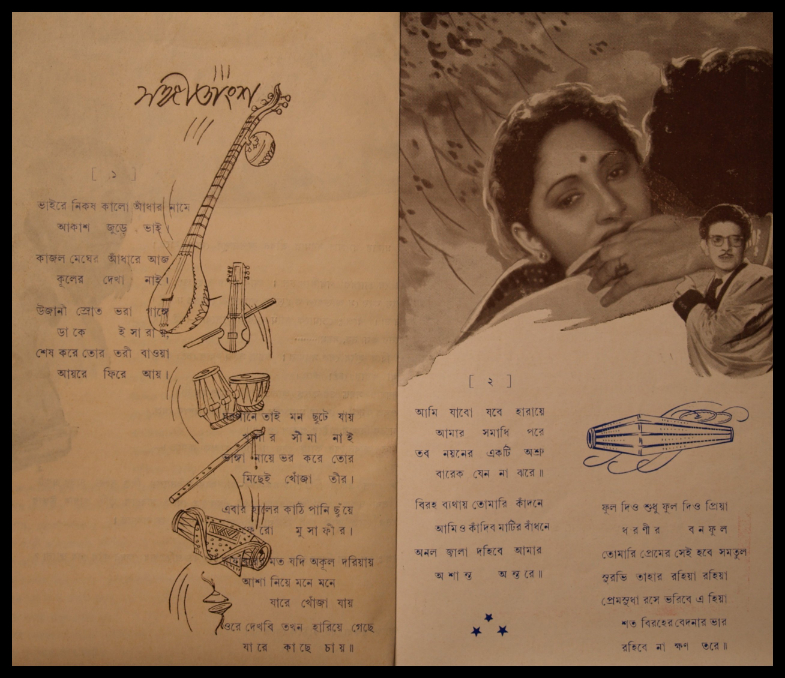 সঙ্গীতাংশ
[ ১ ]
ভাইরে নিকষ কালো আঁদার নামে
আকাশ জুড়ে ভাই
কাজল মেঘের আঁধারে আজ
কূলের দেখা নাই।
উজানী স্রোত ভরা গাঙ্গে
ডাকে ইসারায়,
শেষ করে তোর তরী বাওয়া
আয়রে ফিরে আয়।
তাই মন ছুটে যায়
সীমা নাই
নায়ে ভর করে তোর
মিছেই খোঁজা তীর।
এবার হালের কাঠি পানি ছুঁয়ে
মুসাফীর।
মত যদি অকূল দরিয়ায়
আশা নিয়ে মনে মনে
যারে খোঁজা যায়
ওরে দেখবি তখন হারিয়ে গেছে
যারে কাছে চায়॥
[ ২ ]
আমি যাবো যবে হারায়ে
আমার সমাধি পরে
তব নয়নের একটি অশ্রু
বারেক যেন না ঝরে॥
বিরহ ব্যথায় তোমারি কাঁদনে
আমিও কাঁদিব মাটির বাঁধনে
অনল জ্বালা দহিবে আমার
অশান্ত অন্তরে॥
ফুল দিও শুধু ফুল দিও প্রিয়া
ধরণীর বনফুল
তোমারি প্রেমের সেই হবে সমতুল
সুরভি তাহার রহিয়া রহিয়া
প্রেমসুধা রসে ভরিবে এ হিয়া
শত বিরহের বেদনার ভার
রহিবে না ক্ষণ তরে॥